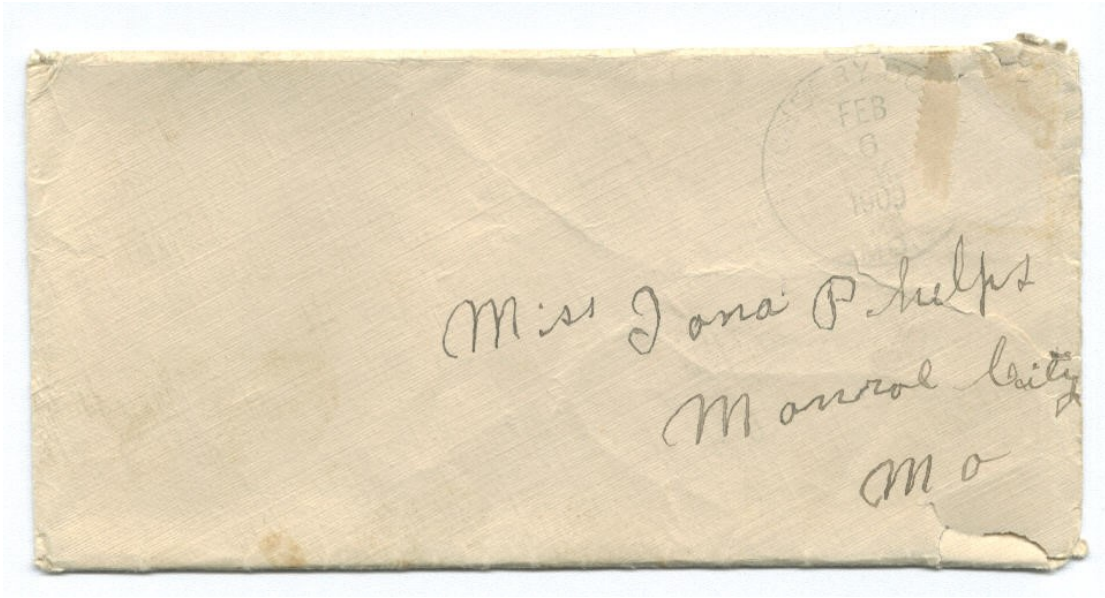 FEB
6
1909
Miss Iona Phelps
Monroe City
Mo